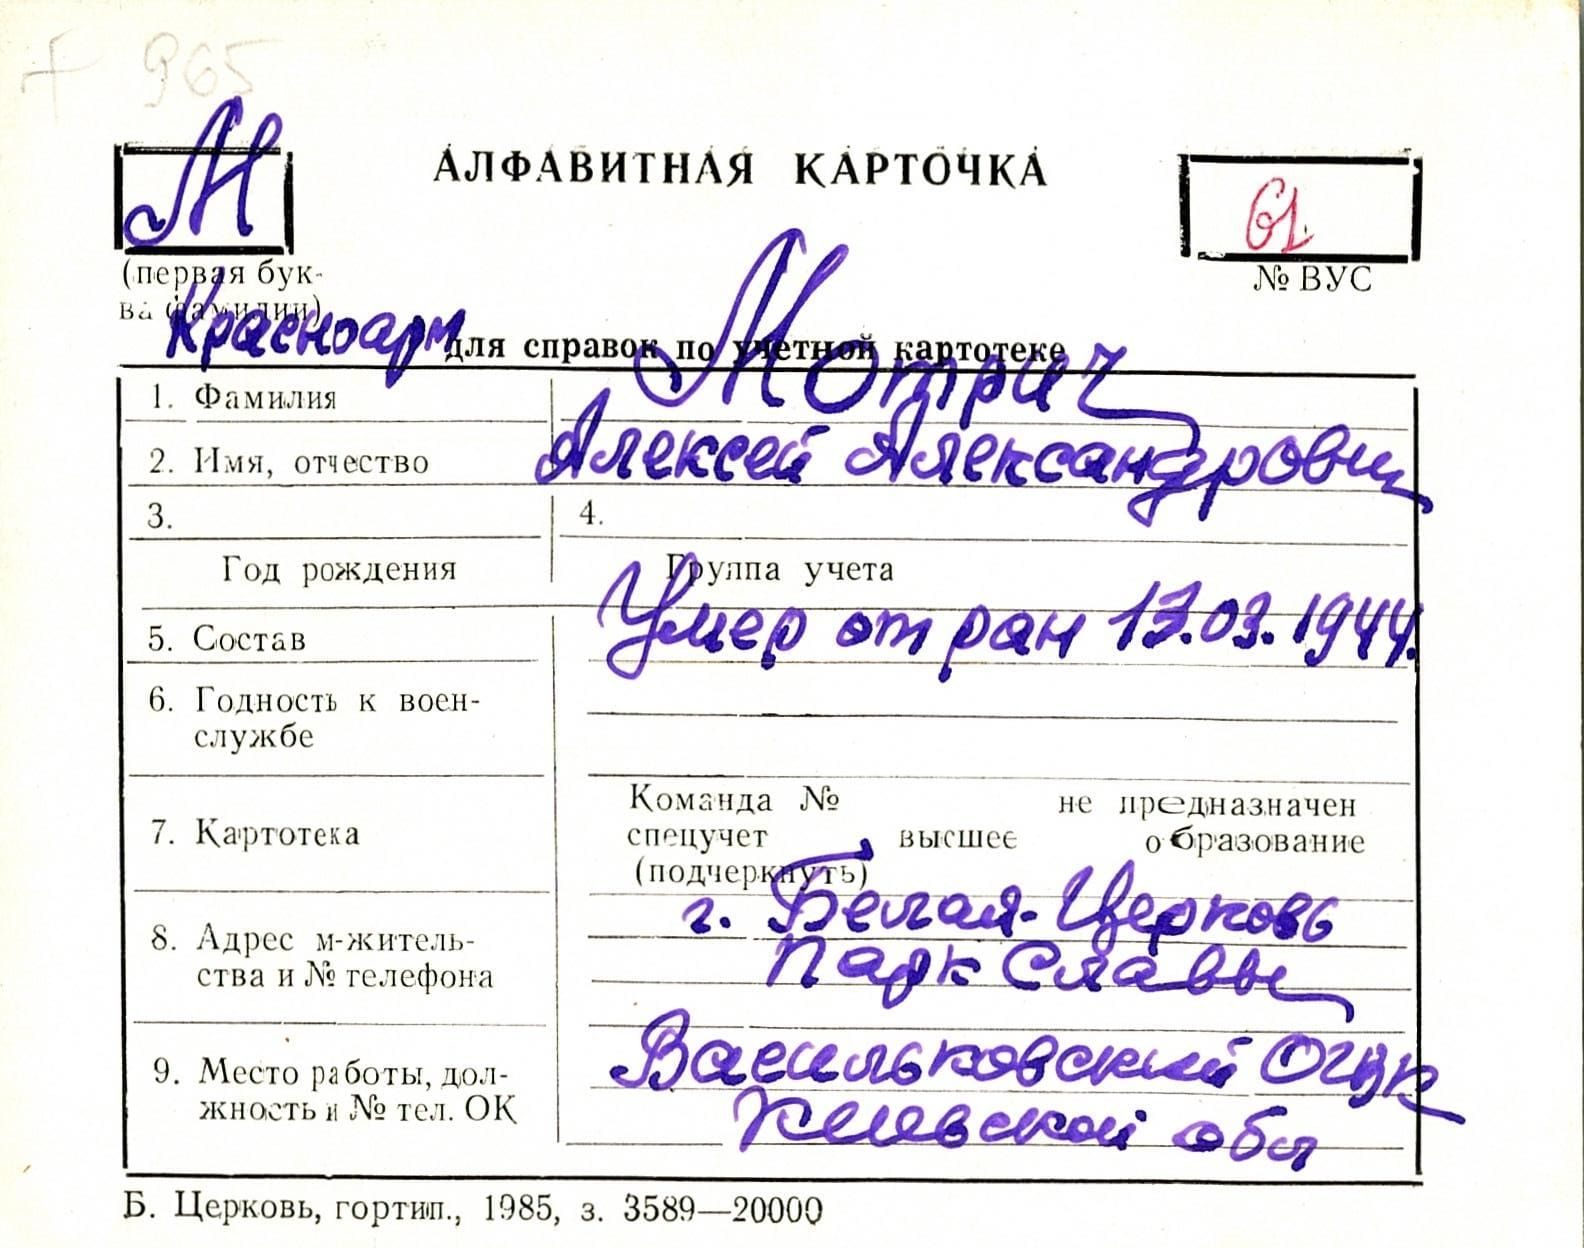 + 965
М
АЛФАВИТНАЯ КАРТОЧКА
61
(первая бук-
ва фамилии)
№ ВУС
Красноарм
для справок по учетной картотеке
1. Фамилия Мотрич
2. Имя, отчество Алексей Александрович
3. 4.
Год рождения Группа учета
5. Состав Умер от ран 13.03.1944.
6. Годность к воен-
службе
7. Картотека
Команда № не предназначен
спецучет высшее образование
(подчеркнуть)
8. Адрес м-житель-
ства и № телефона
г. Белая-Церковь
Парк Славы
9. Место работы, дол-
жность и № тел. ОК
Васильковский ОГВК
Киевской обл
Б. Церковь, гортип., 1985, з. 3589—20000